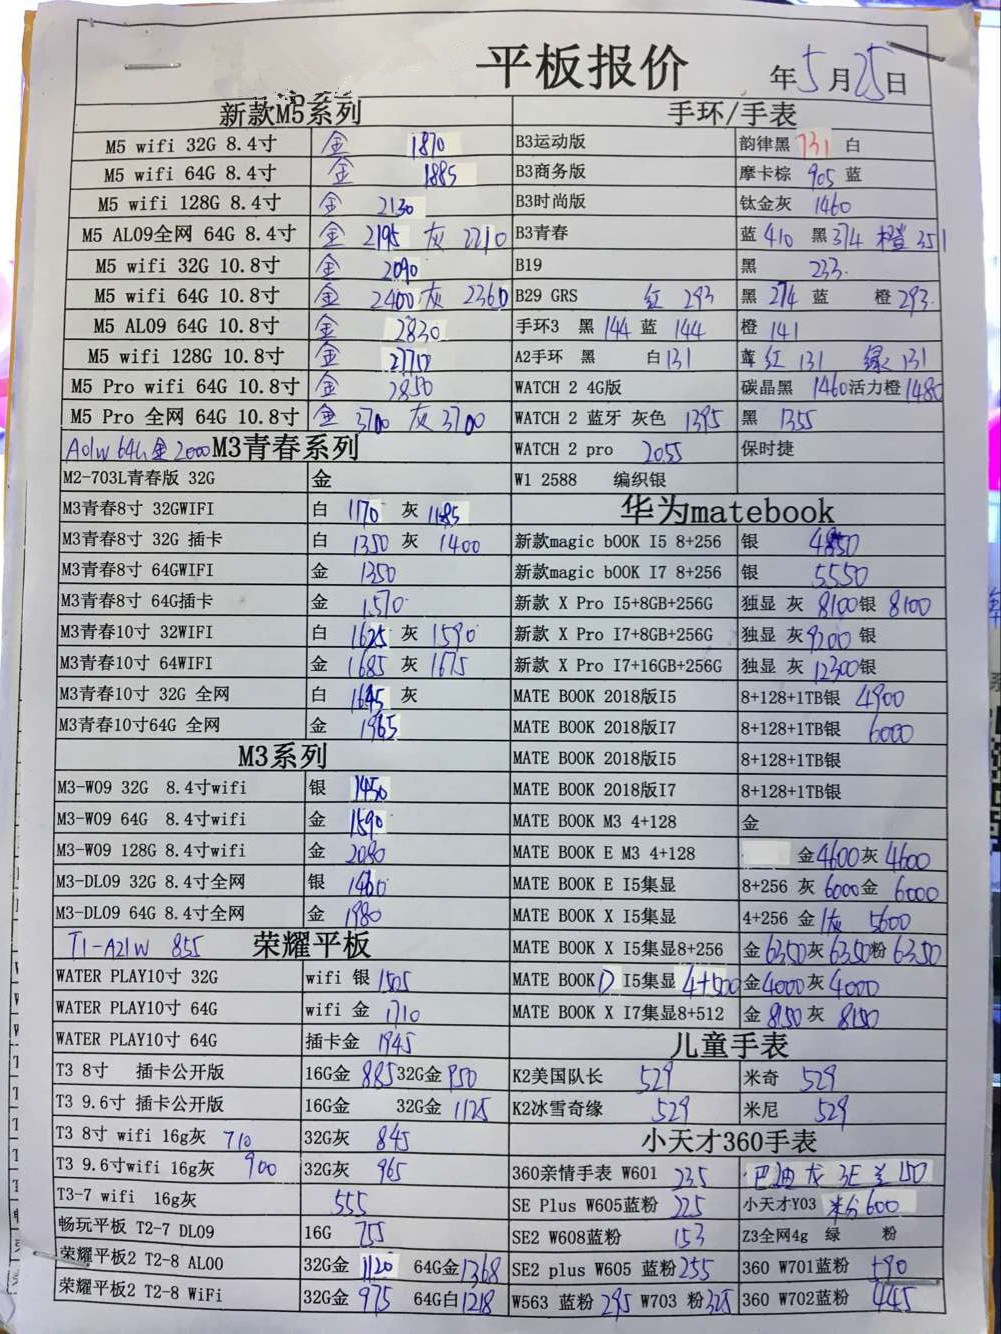 平板报价 年5月25日
新款M5系列
M5 wifi 32G 8.4寸 金 1870
M5 wifi 64G 8.4寸 金 1885
M5 wifi 128G 8.4寸 金 2130
M5 AL09全网 64G 8.4寸 金 2195 灰 2210
M5 wifi 32G 10.8寸 金 2090
M5 wifi 64G 10.8寸 金 2400 灰 2360
M5 AL09 64G 10.8寸 金 2830
M5 wifi 128G 10.8寸 金 2770
M5 Pro wifi 64G 10.8寸 金 2850
M5 Pro 全网 64G 10.8寸 金 3700 灰 3700
A01W 64G 金 2000 M3青春系列
M2-703L青春版 32G 金
M3青春8寸 32GWIFI 白 1170 灰 1185
M3青春8寸 32G 插卡 白 1350 灰 1400
M3青春8寸 64GWIFI 金 1350
M3青春8寸 64G插卡 金 1570
M3青春10寸 32WIFI 白 1625 灰 1590
M3青春10寸 64WIFI 金 1685 灰 1675
M3青春10寸 32G 全网 白 1645 灰
M3青春10寸64G 全网 金 1965
M3系列
M3-W09 32G 8.4寸wifi 银 1450
M3-W09 64G 8.4寸wifi 金 1590
M3-W09 128G 8.4寸wifi 金 2080
M3-DL09 32G 8.4寸全网 银 1460
M3-DL09 64G 8.4寸全网 金 1980
T1-A21W 855 荣耀平板
WATER PLAY10寸 32G wifi 银 1505
WATER PLAY10寸 64G wifi 金 1710
WATER PLAY10寸 64G 插卡金 1945
T3 8寸 插卡公开版 16G金 885 32G金 950
T3 9.6寸 插卡公开版 16G金 32G金 1125
T3 8寸 wifi 16g灰 710 32G灰 845
T3 9.6寸wifi 16g灰 900 32G灰 965
T3-7 wifi 16g灰 555
畅玩平板 T2-7 DL09 16G 755
荣耀平板2 T2-8 AL00 32G金 1120 64G金 1368
荣耀平板2 T2-8 WiFi 32G金 975 64G白 1218
手环/手表
B3运动版 韵律黑 731 白
B3商务版 摩卡棕 905 蓝
B3时尚版 钛金灰 1460
B3青春 蓝 410 黑 374 橙 351
B19 黑 233
B29 GRS 红 293 黑 274 蓝 橙 293
手环3 黑 144 蓝 144 橙 141
A2手环 黑 白 131 红 131 绿 131
WATCH 2 4G版 碳晶黑 1460 活力橙 1480
WATCH 2 蓝牙 灰色 1395 黑 1355
WATCH 2 pro 2055 保时捷
W1 2588 编织银
华为matebook
新款magic bOOK I5 8+256 银 4850
新款magic bOOK I7 8+256 银 5550
新款 X Pro I5+8GB+256G 独显 灰 8100 银 8100
新款 X Pro I7+8GB+256G 独显 灰 9200 银
新款 X Pro I7+16GB+256G 独显 灰 12300 银
MATE BOOK 2018版I5 8+128+1TB银 4900
MATE BOOK 2018版I7 8+128+1TB银 6000
MATE BOOK 2018版I5 8+128+1TB银
MATE BOOK 2018版I7 8+128+1TB银
MATE BOOK M3 4+128 金
MATE BOOK E M3 4+128 金 4600 灰 4600
MATE BOOK E I5集显 8+256 灰 6000 金 6000
MATE BOOK X I5集显 4+256 金 灰 5600
MATE BOOK X I5集显8+256 金 6350 灰 6350 粉 6350
MATE BOOK D I5集显 4+500 金 4000 灰 4000
MATE BOOK X I7集显8+512 金 8150 灰 8150
儿童手表
K2美国队长 529 米奇 529
K2冰雪奇缘 529 米尼 529
小天才360手表
360亲情手表 W601 235 巴迪龙 3E 兰 150
SE Plus W605蓝粉 225 小天才Y03 600
SE2 W608蓝粉 153 Z3全网4g 绿 粉
SE2 plus W605 蓝粉 255 360 W701蓝粉
W563 蓝粉 295 W703 粉 325 360 W702蓝粉 445